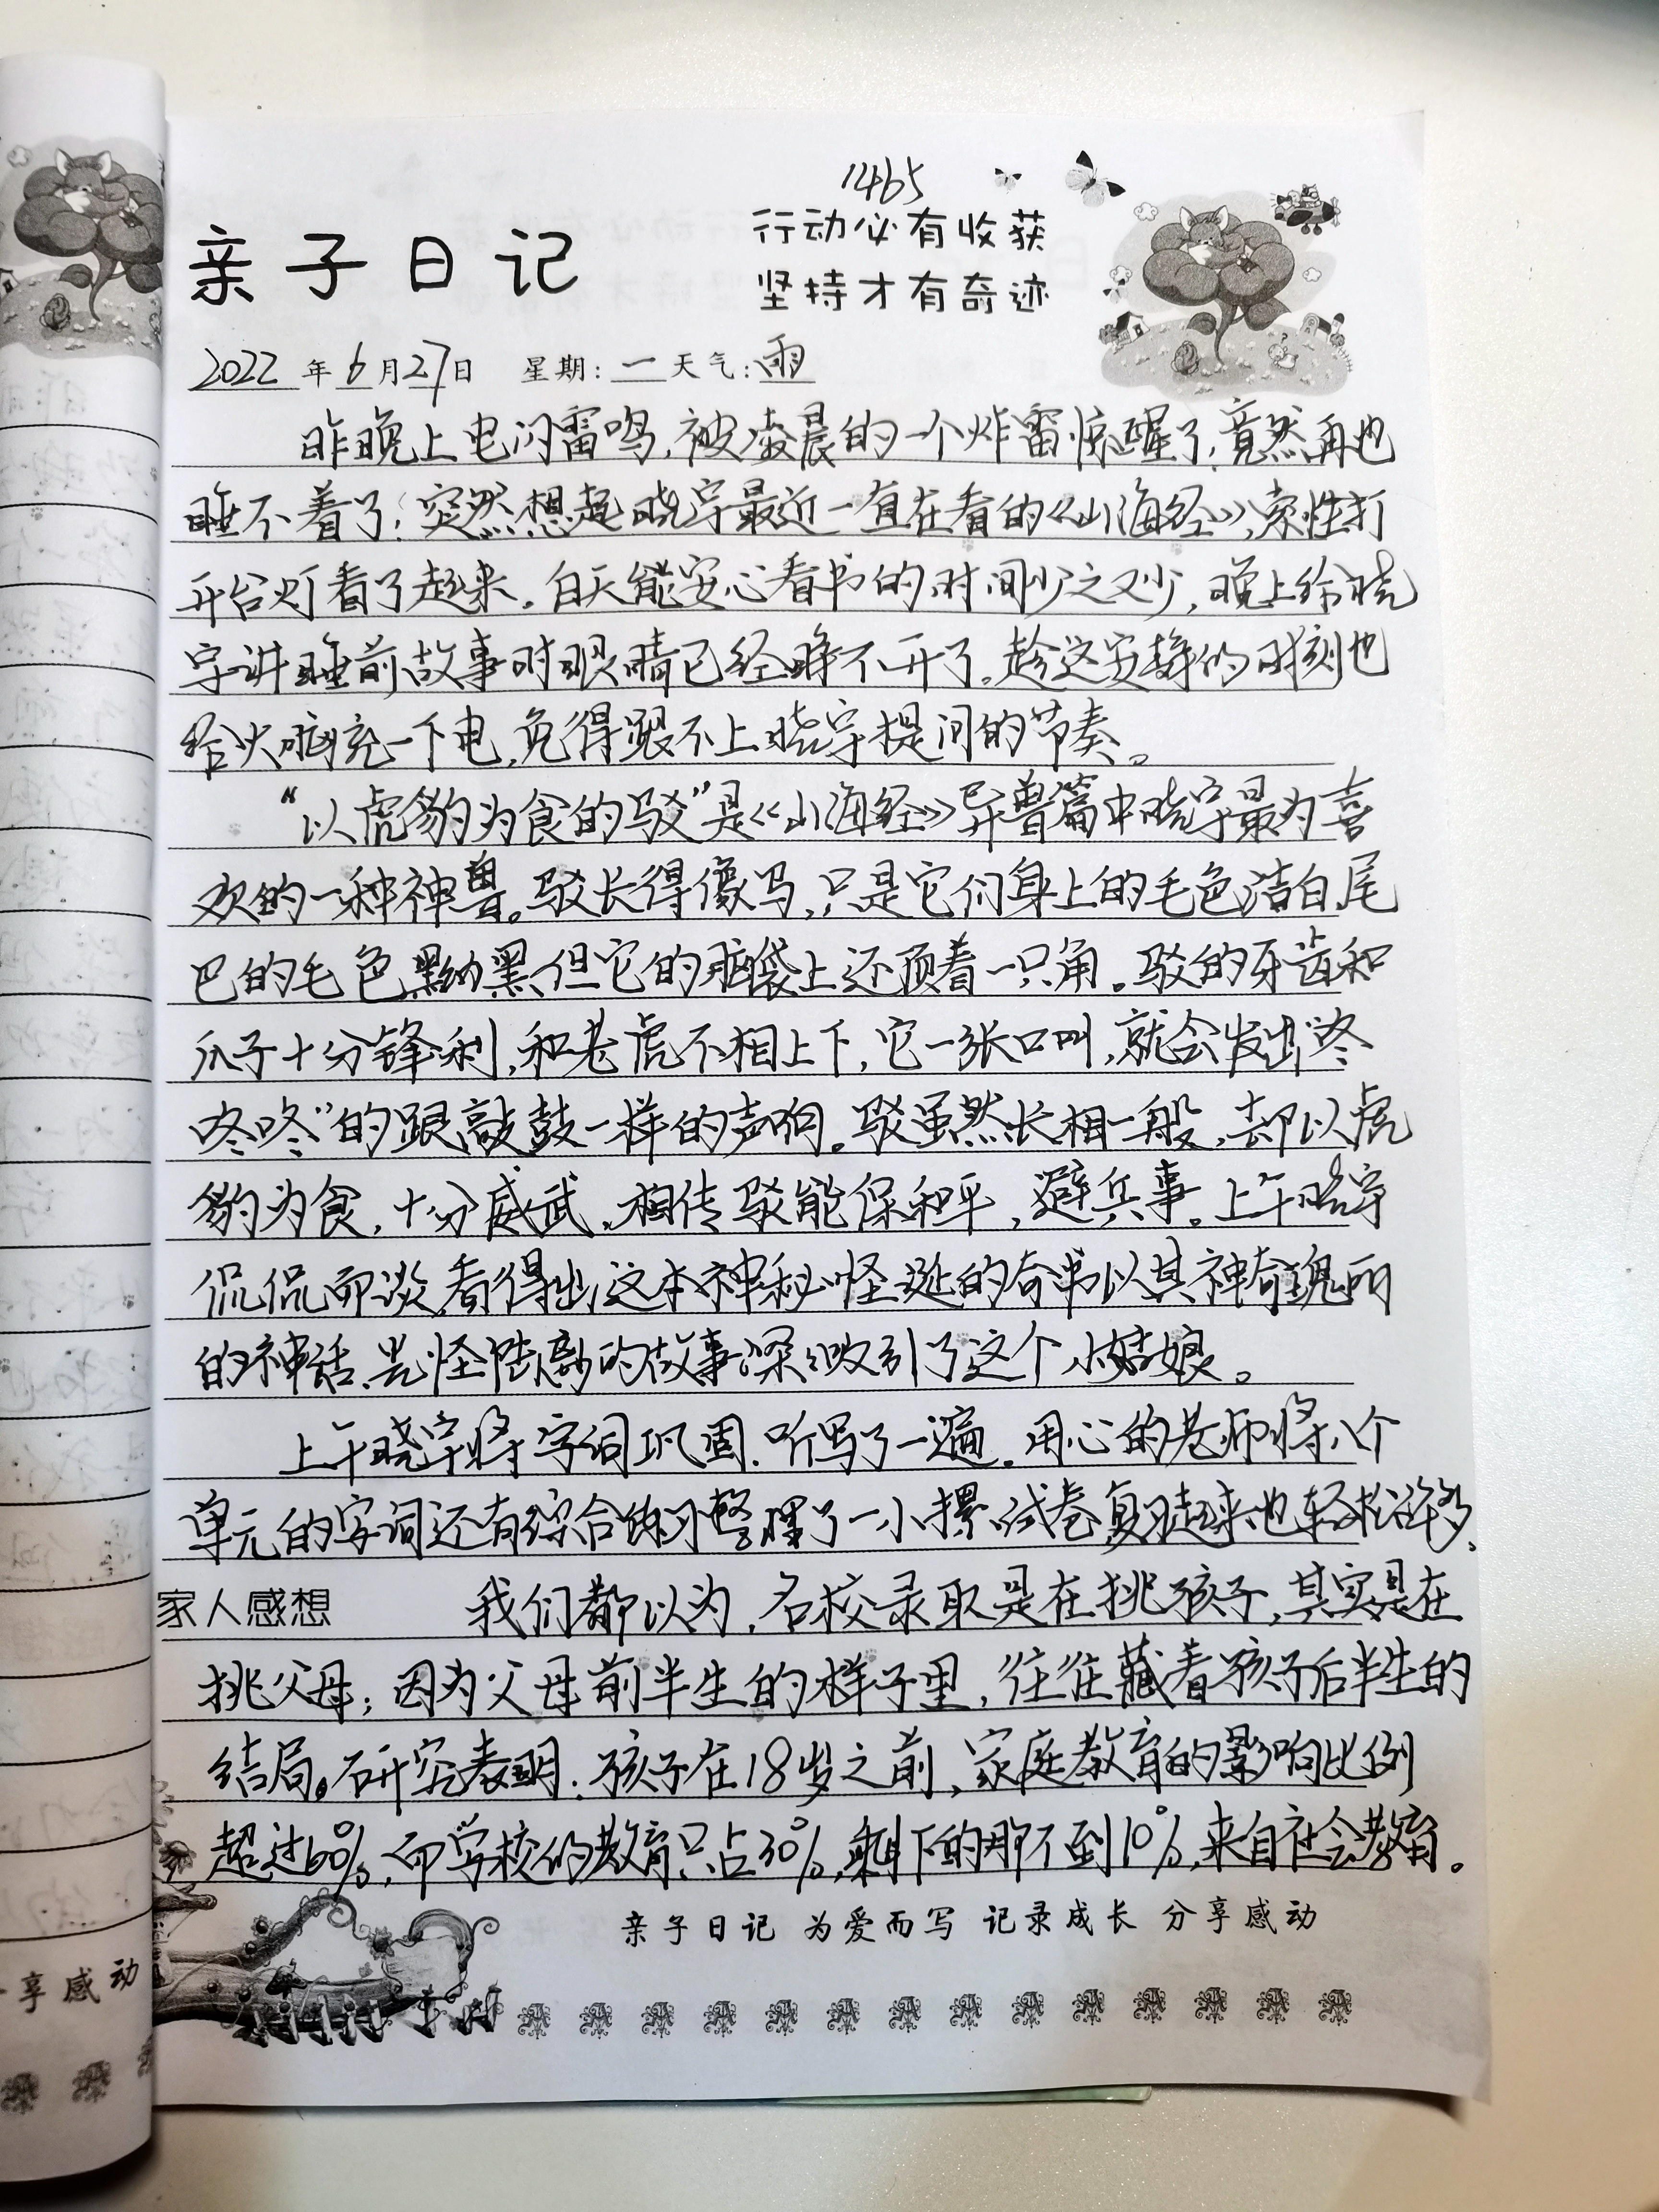 1465
亲子日记
行动必有收获
坚持才有奇迹
2022年6月27日 星期:一 天气:雨
昨晚上电闪雷鸣,被凌晨的一个炸雷惊醒了,竟然再也
睡不着了;突然想起晓宇最近一直在看的《山海经》,索性打
开台灯看了起来。白天能安心看书的时间少之又少,晚上给晓
宇讲睡前故事时眼睛已经睁不开了。趁这安静的时刻也
给大脑充一下电,免得跟不上晓宇提问的节奏。
“以虎豹为食的驳”是《山海经》异兽篇中晓宇最为喜
欢的一种神兽。驳长得像马,只是它们身上的毛色洁白,尾
巴的毛色黑纳黑,但它的脑袋上还顶着一只角。驳的牙齿和
爪子十分锋利,和老虎不相上下,它一张口叫,就会发出“咚
咚咚”的跟敲鼓一样的声响。驳虽然长相一般,却以虎
豹为食,十分威武。相传驳能保和平,避兵事。上午晓宇
侃侃而谈,看得出这本神秘怪诞的奇书以其神奇瑰丽
的神话、光怪陆离的故事深深吸引了这个小姑娘。
上午晓宇将字词巩固.听写了一遍。用心的老师将八个
单元的字词还有综合练习整理了一小摞试卷,复习起来也轻松许多。
家人感想 我们都以为,名校录取是在挑孩子,其实是在
挑父母;因为父母前半生的样子里,往往藏着孩子后半生的
结局。研究表明:孩子在18岁之前,家庭教育的影响比例
超过60%,而学校的教育只占30%,剩下的那不到10%,来自社会教育。
亲子日记 为爱而写 记录成长 分享感动
享感动